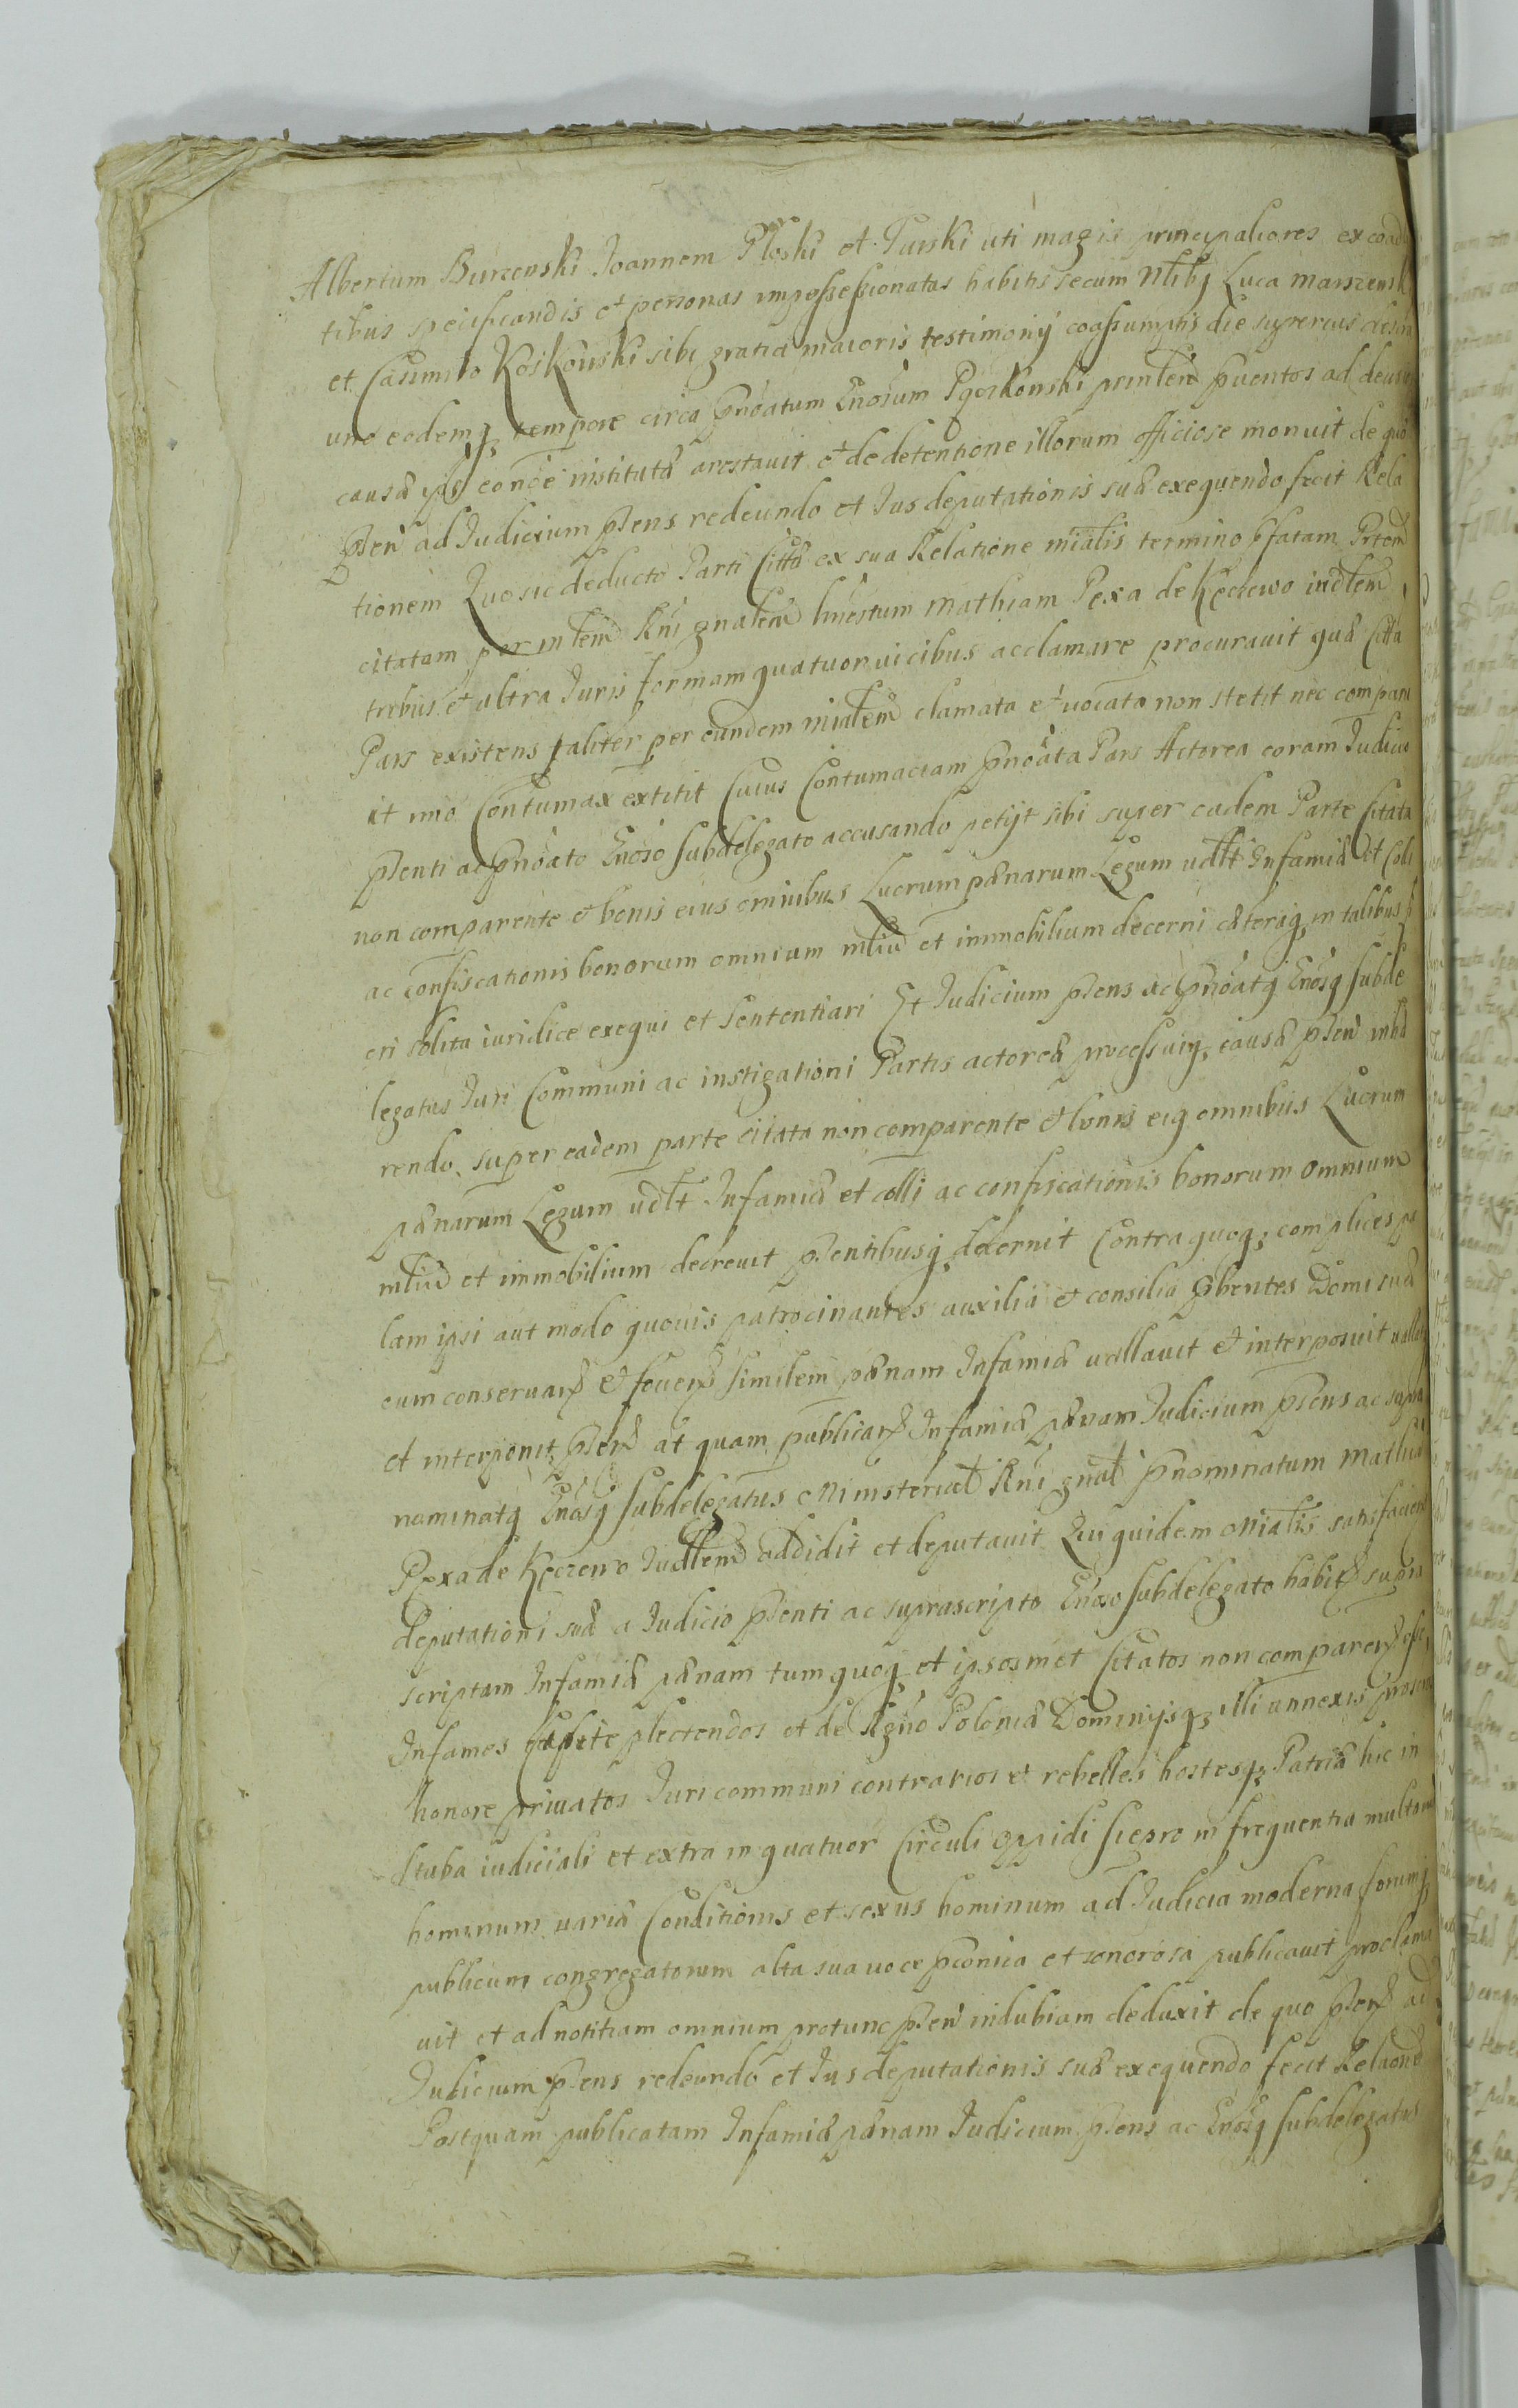 Albertum Burzenski Joannem Ploski et Turski uti magis principaliores ex coad
tibus specificandis et personas impossessionatas habitis secum Nlibq Luca
et Casimiro Koskowski sibi gratia maioris testimonij coassumptis die superius
uno eodemq tempore circa pnoatum Gnosum printer puentos ad
causa institutæ arestavit et de detentione illorum officiose monuit de quo
psen ad Judicium psens redeundo et Jus deputationis suæ exequendo fecit Rela
tionem Quo sic deducto Parti Citta ex sua Relatione mialis termino
citatam per mlem Rni gnalem hnestum Mathiam Pexa de Kęczewo
tribus et ultra Juris formam quatuor vicibus acclamare procuravit quæ Citta
Pars existens taliter per eundem mialem clamata et vocata non stetit nec compar
it imo Contumax extitit Cuius Contumaciam pnoata Pars Actorea coram Judicio
psenti ac pnoato Gnoso subdelegato accusando petijt sibi super eadem Parte Citata
non comparente et bonis eius omnibus Lucrum pænarum Legum udlt Infamiæ et Coli
ac confiscationis bonorum omnium mliu et immobilium decerni cæteraq in talibus
eri solita iuridice exequi et sententiari Et Judicium psens ac pnoatq Gnosq subde
legatus Juri Communi ac instigationi Partis actoreæ processuiq causæ psen
rendo super eadem parte citata non comparente et bonis eiq omnibus Lucrum
pænarum Legum udlt Infamiæ et colli ac confiscationis bonorum omnium
mliu et immobilium decrevit psentibusq decernit Contra quoq complices
lam ipsi aut modo quovis patrocinantes auxilia et consilia pbentes Domi suæ
eum conservan et foven similem pænam Infamiæ vallavit et interposuit
et interponit psen at quam publican Infamiæ pænam Judicium psens ac
nominatq Gnosq subdelegatus Ministerial Rni gnal pnominatum Mathia
Pexa de Kęczewo addidit et deputavit Qui quidem Mialis satisfacien
deputationi suæ a Judicio psenti ac suprascripto Gnoso subdelegato habit supra
scriptam Infamiæ pænam tum quoq et ipsosmet Citatos non comparen
Infames capite plectendos et de Regno Poloniæ Dominijsq illi annexis
honore privatos Juri communi contrarios et rebelles hostesq Patriæ hic in
stuba iudiciali et extra in quatuor Circuli oppidi Siepro in frequentia multorum
hominum variæ Conditionis et sexus hominum ad Judicia moderna forumq
publicum congregatorum alta sua voce pconica et sonorosa publicavit proclama
vit et ad notitiam omnium protunc psen indubiam deduxit de quo psen ad
Judicium psens redeundo et Jus deputationis suæ exequendo fecit Relaone
Postquam publicatam Infamiæ pænam Judicium psens ac Gnosq subdelegatus